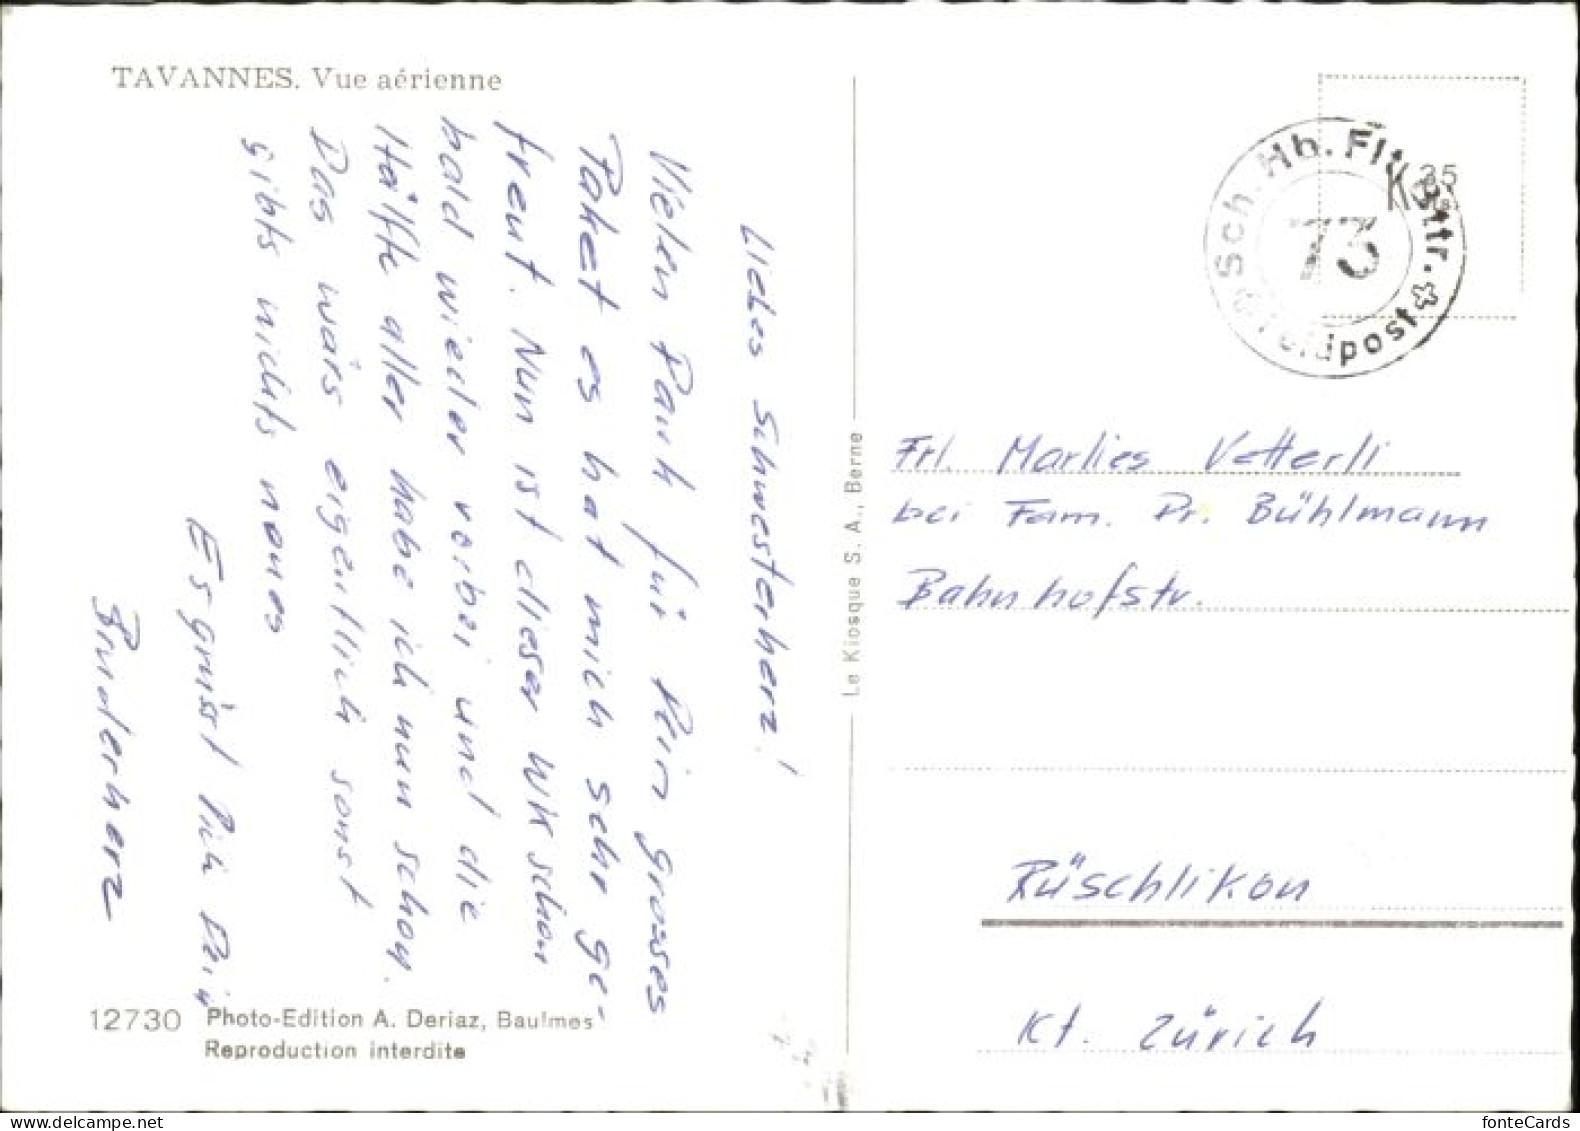 TAVANNES. Vue aérienne
Liebes Schwesterherz!
Vielen Dank für Dein grosses
Paket es hat mich sehr ge-
freut. Nun ist dieser WK schon
bald wieder vorbei und die
Hälfte aller habe ich nun schon.
Das wärs eigentlich sonst
gibts nichts neues
Es grüsst Dich Dein
Bruderherz
12730 Photo-Edition A. Deriaz, Baulmes
Reproduction interdite
Le Kiosque S. A., Berne
Sch. Hb. Flt. Bttr.
73
Feldpost
Frl. Marlies Vetterli
bei Fam. Dr. Bühlmann
Bahnhofstr.
Rüschlikon
Kt. Zürich
fonteCards